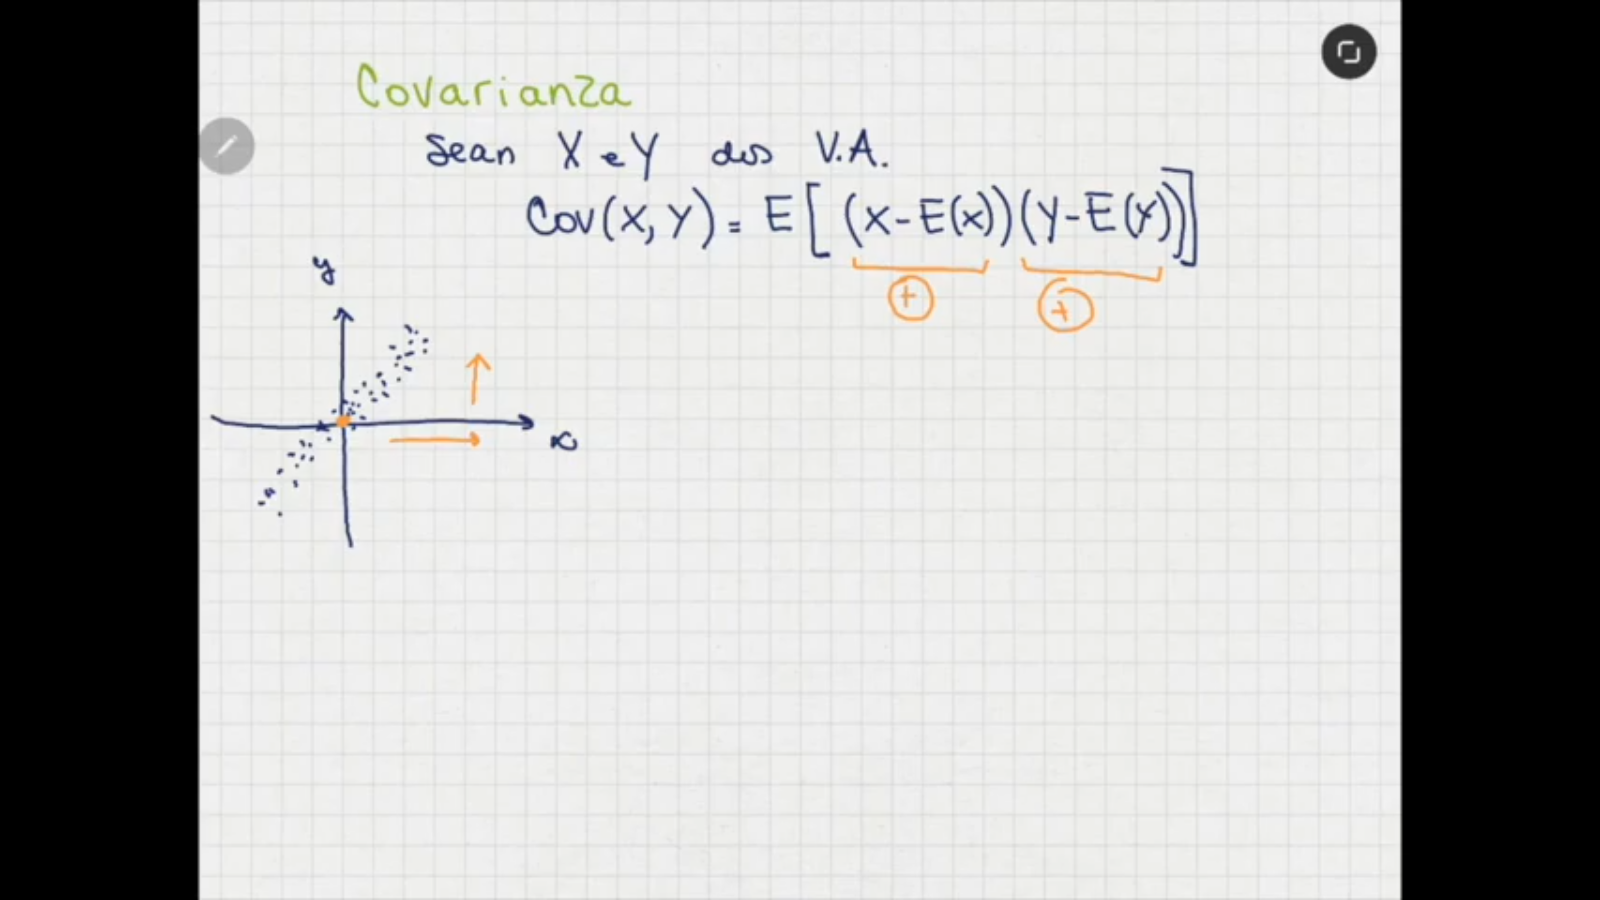 Covarianza
Sean X e Y dos V.A.
Cov(X, Y) = E[(X-E(x))(Y-E(Y))]
+ +
y
x